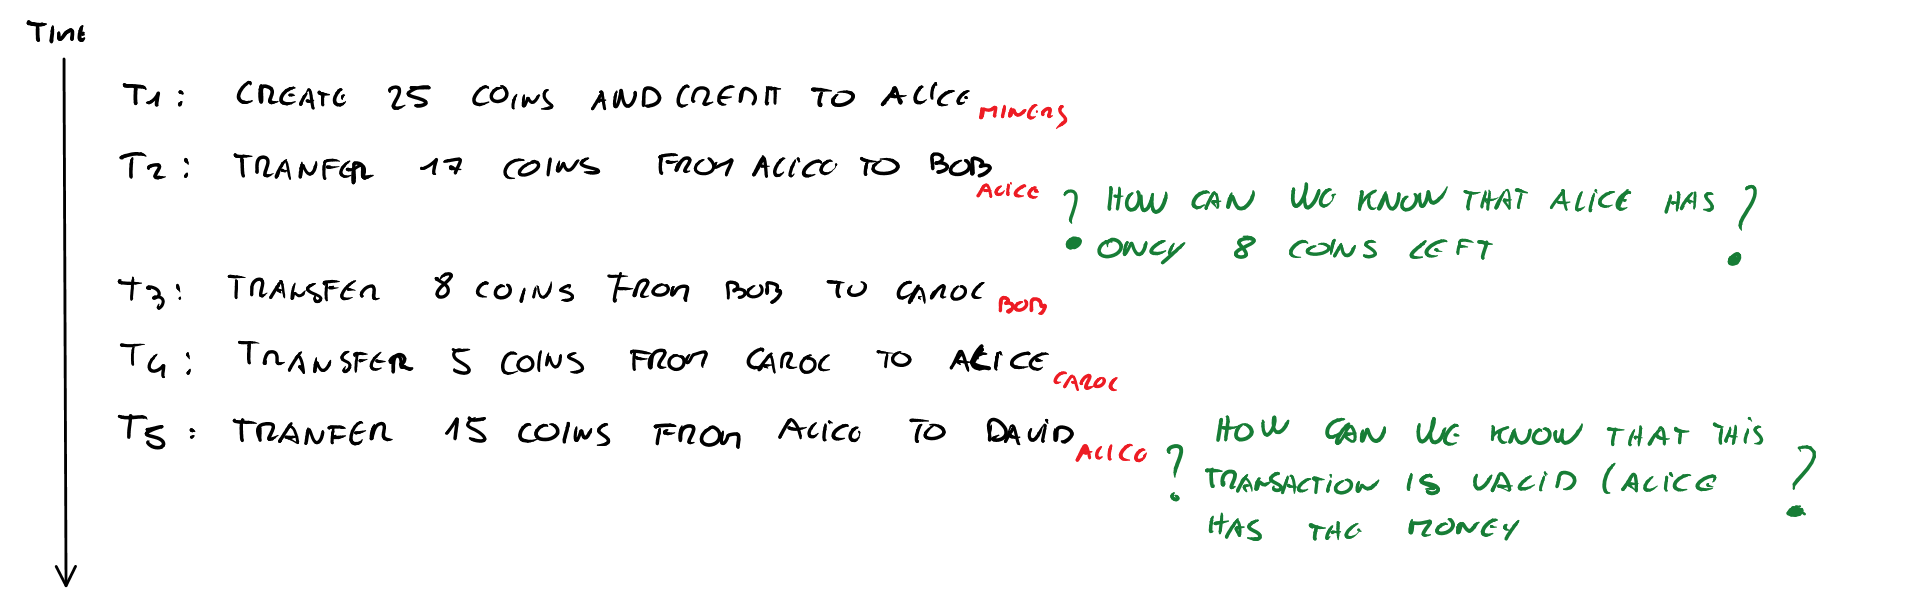 TIME
T1: CREATE 25 COINS AND CREDIT TO ALICE MINERS
T2: TRANFER 17 COINS FROM ALICE TO BOB ALICE
? HOW CAN WE KNOW THAT ALICE HAS ?
ONLY 8 COINS LEFT
T3: TRANSFER 8 COINS FROM BOB TO CAROL BOB
T4: TRANSFER 5 COINS FROM CAROL TO ALICE CAROL
T5: TRANFER 15 COINS FROM ALICE TO DAVID ALICE
? HOW CAN WE KNOW THAT THIS
TRANSACTION IS VALID (ALICE ?
HAS THE MONEY